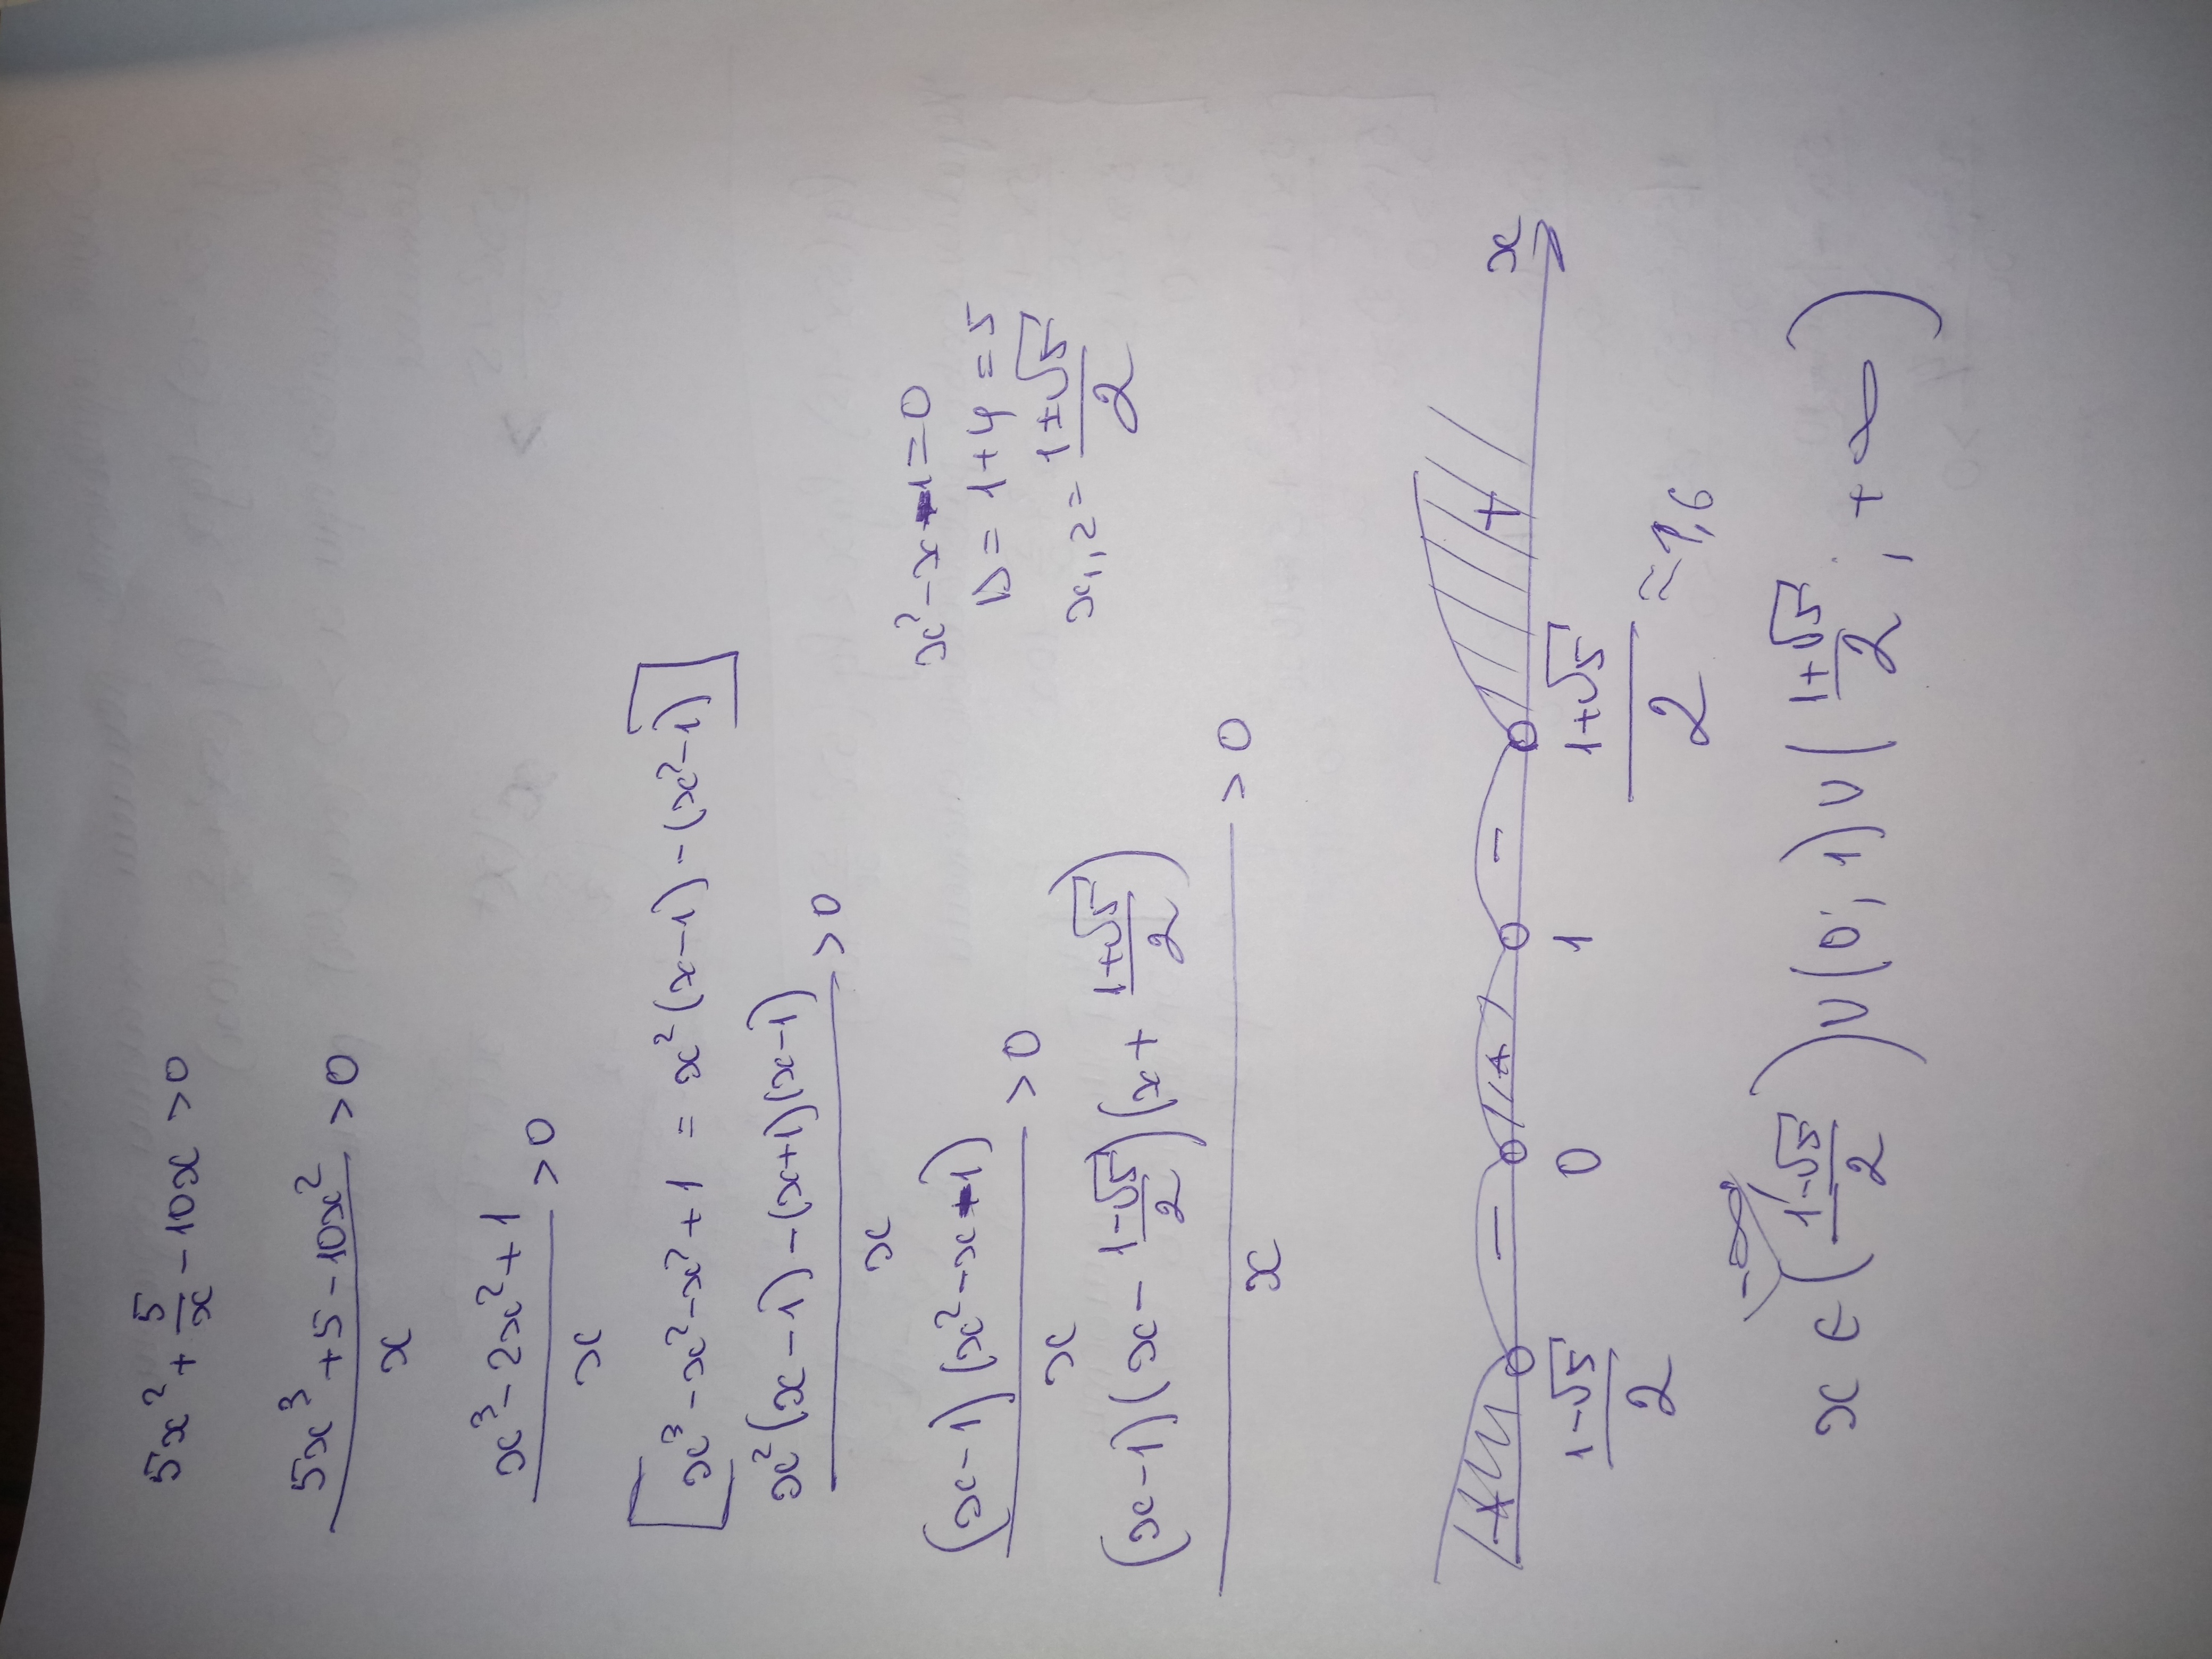 5x² + 5/x - 10x > 0
(5x³ + 5 - 10x²)/x > 0
(x³ - 2x² + 1)/x > 0
[x³ - x² - x² + 1 = x²(x-1) - (x²-1)]
(x²(x-1) - (x+1)(x-1))/x > 0
((x-1)(x² - x - 1))/x > 0
x² - x - 1 = 0
D = 1 + 4 = 5
x₁,₂ = (1±√5)/2
((x-1)(x - (1-√5)/2)(x + (1+√5)/2))/x > 0
+ - + - + x
(1-√5)/2 0 1 (1+√5)/2 ≈ 1,6
x ∈ (-∞; (1-√5)/2) ∪ (0; 1) ∪ ((1+√5)/2; +∞)